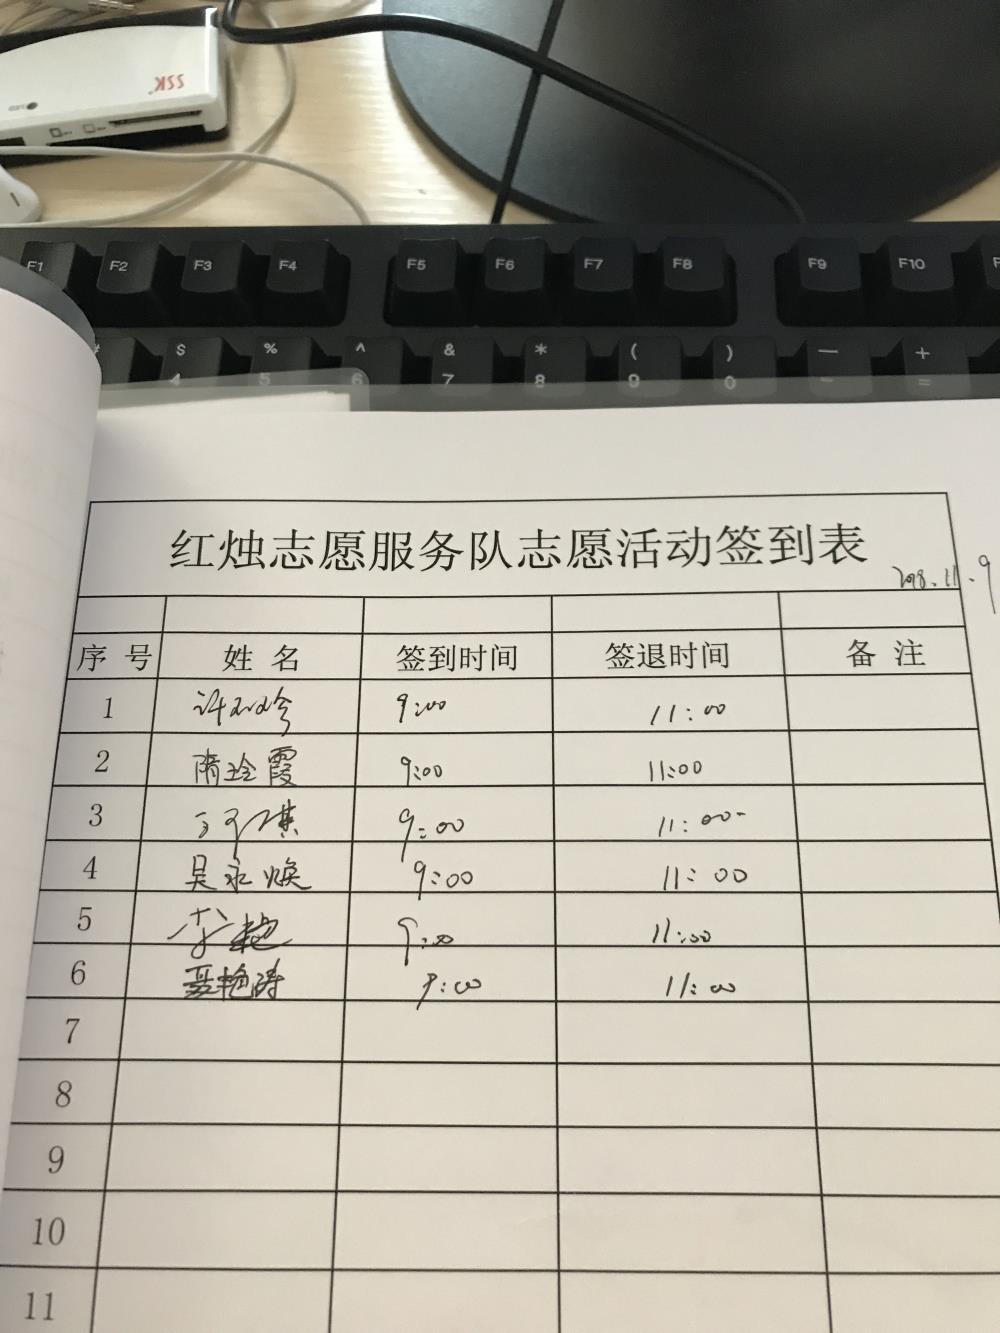 SSK
F1 F2 F3 F4 F5 F6 F7 F8 F9 F10
# $ % ^ & * ( ) — +
4 5 6 7 8 9 0 - =
红烛志愿服务队志愿活动签到表
2018.11.9
序号 姓名 签到时间 签退时间 备注
1 9:00 11:00
2 隋玲霞 9:00 11:00
3 9:00 11:00
4 吴永焕 9:00 11:00
5 李艳 9:00 11:00
6 聂艳涛 9:00 11:00
7
8
9
10
11